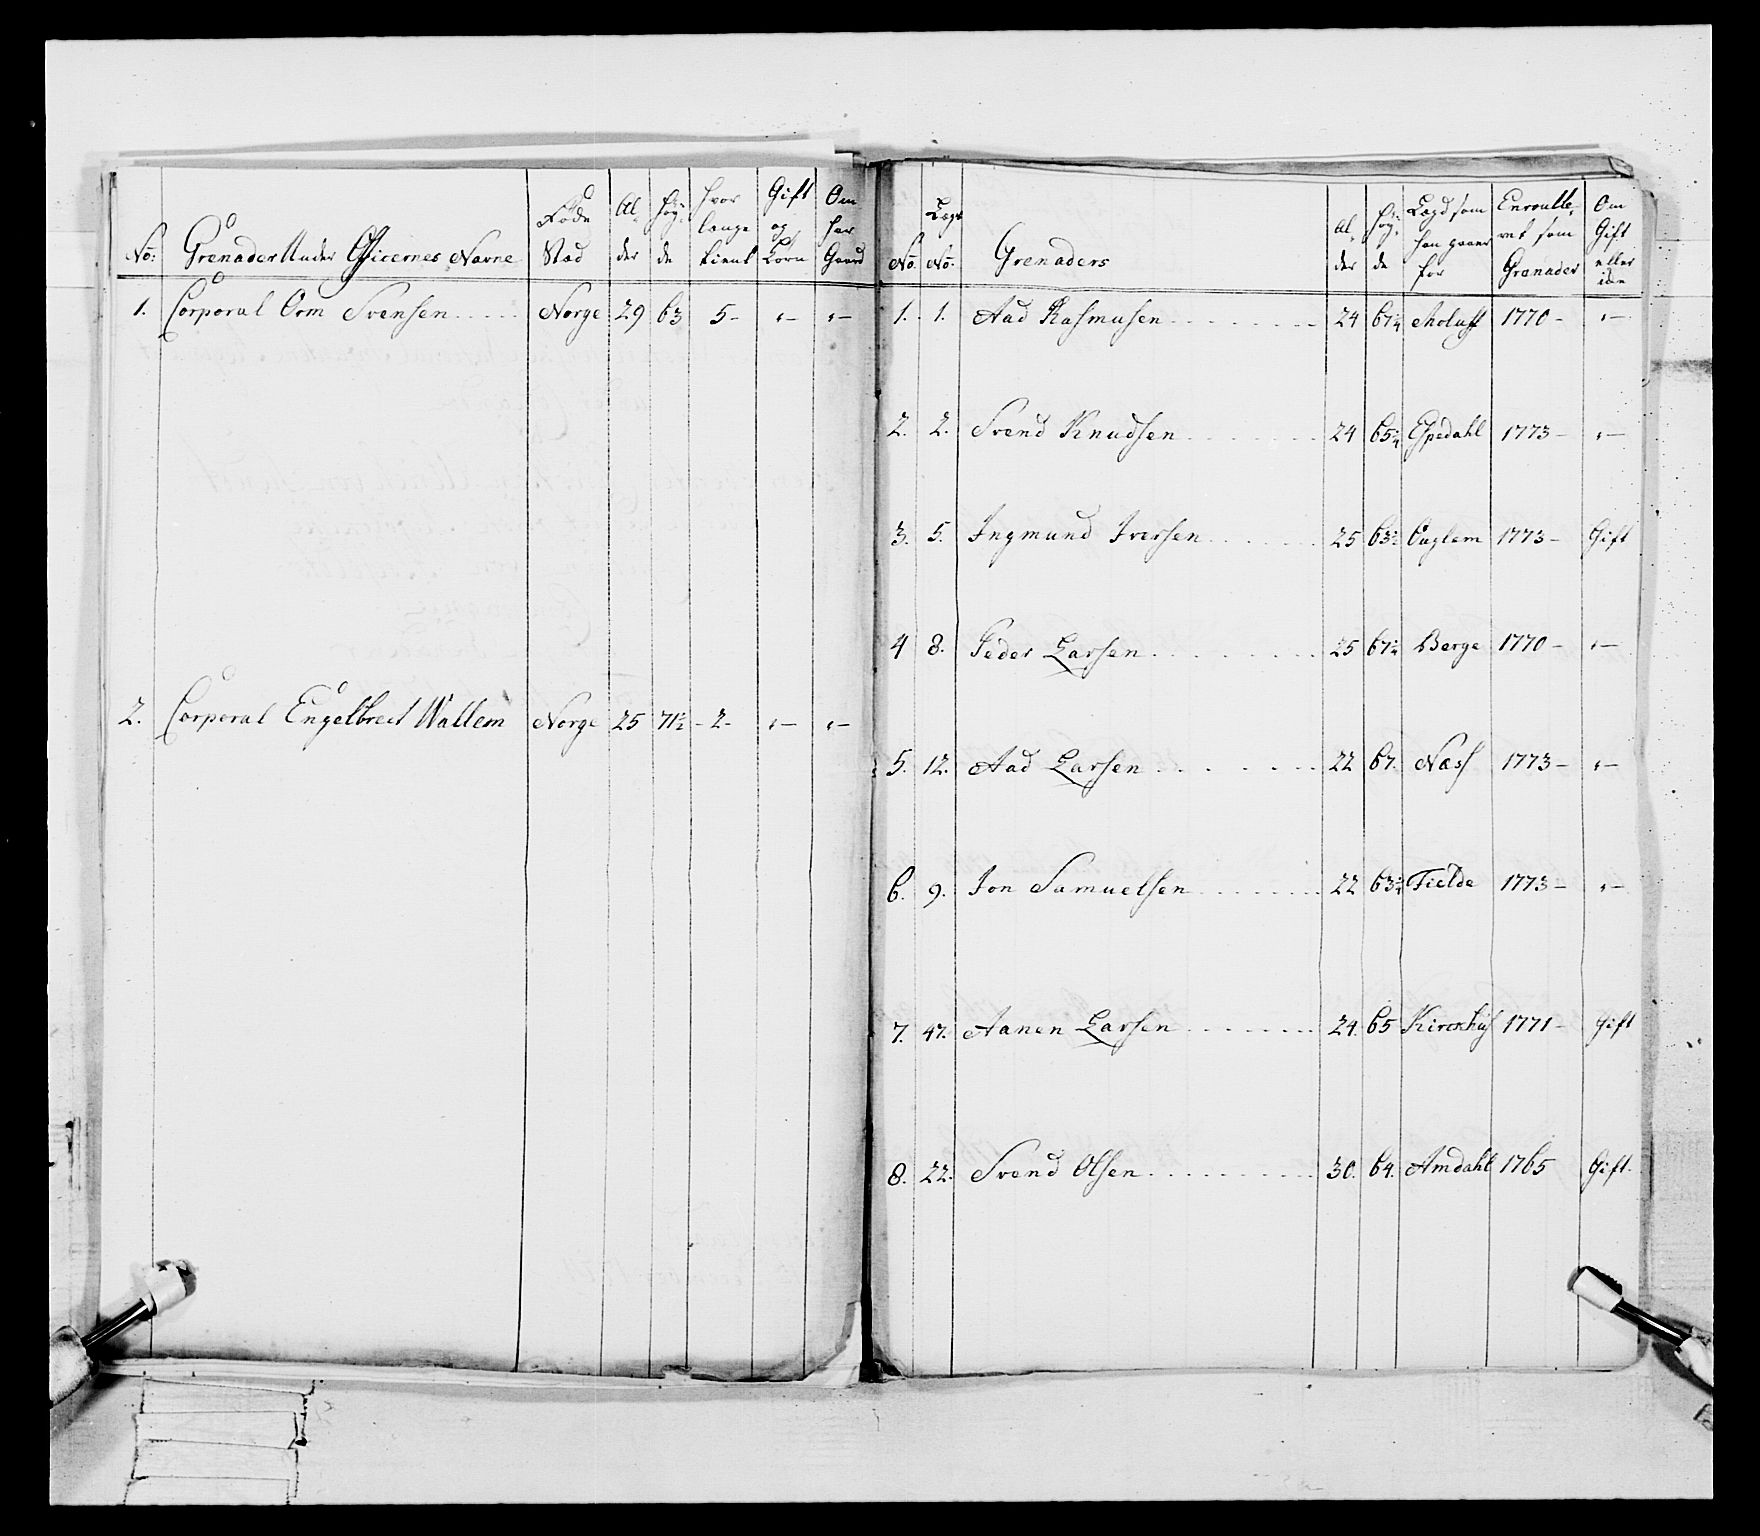 No: Grenader Under Officernes Navne Føde Stad Al der Høy de hvor lange tient Gift og Torn Om har Gaard
1. Corporal Orm Svensen Norge 29 63 5 - „ - „ -
2. Corporal Engelbrect Wallem Norge 25 71½ - 2 - „ - „ -
No. Lægs No. Grenaders Al der Høy de Lægd som han staaer for Enroulle ret som Granader Om Gift eller ike
1. 1. Aad Rasmusen 24 67¼ 1770 - „ -
2. 2. Svend Knudsen 24 65¼ Espedahl 1773 - „ -
3. 5. Ingmund Iversen 25 63½ Euglem 1773 - Gift
4 8. Peder Larsen 25 67¼ Berge 1770 - „ -
5. 12. Aad Larsen 22 67. Næss 1773 - „ -
6. 9. Jon Samuelsen 22 63¾ Fielde 1773 - „ -
7. 47. Aanen Larsen 24. 65 1771 - Gift
8. 22. Svend Olsen 30. 64. Amdahl 1765 Gift.